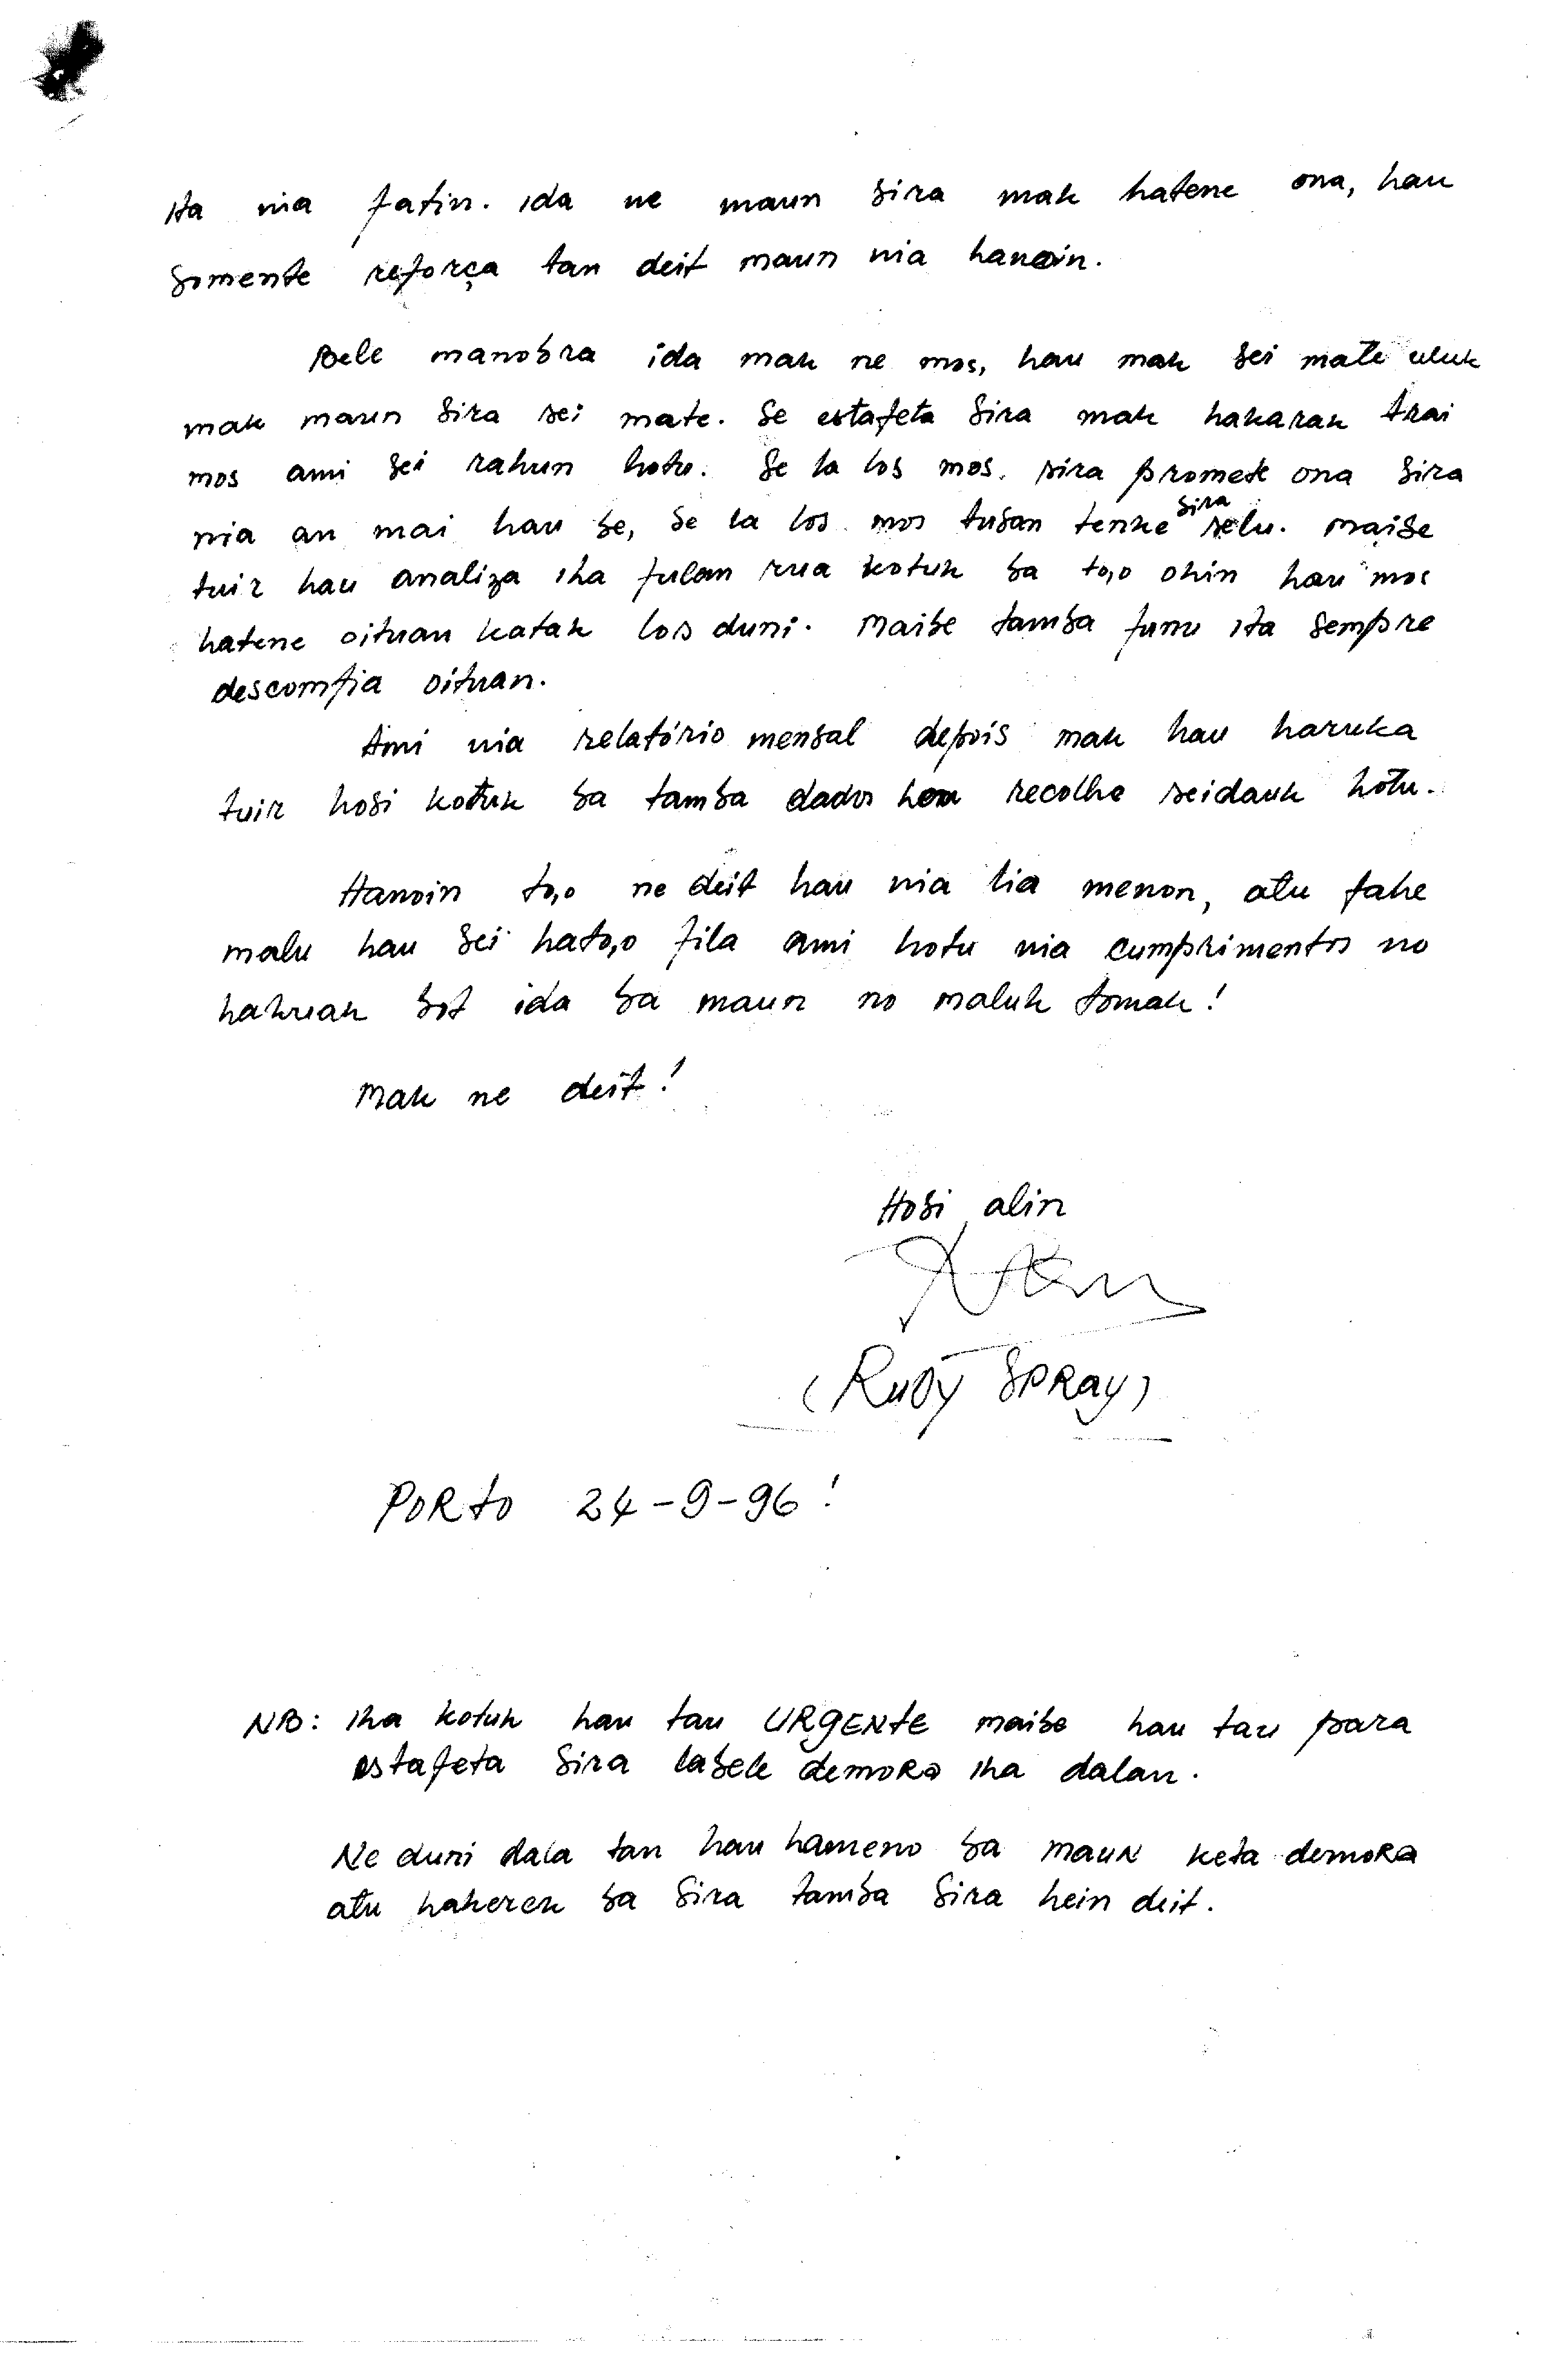 ita nia fatin. ida ne maun sira mak hatene ona, hau
somente reforça tan deit maun nia hanoin.
Bele manobra ida mak ne mos, hau mak sei mate uluk
mak maun sira sei mate. Se estafeta sira mak hakarak trai
mos ami sei rahun hotu. Se la los mos. sira promete ona sira
nia an mai hau be, se la los mos tusan tenke sira selu. Maibe
tuir hau analiza iha fulan rua kotuk ba to,o ohin hau mos
hatene oituan katak los duni. Maibe tamba funu ita sempre
descomfia oituan.
Ami nia relatório mensal depois mak hau haruka
tuir hosi kotuk ba tamba dados hau recolhe seidauk hotu.
Hanoin to,o ne deit hau nia lia menon, atu fahe
malu hau sei hato,o fila ami hotu nia cumprimentos no
hakuak bot ida ba maun no maluk tomak!
Mak ne deit!
Hosi alin
(RUDY SPRAY)
PORTO 24-9-96!
NB: iha kotuk hau tau URGENTE maibe hau tau para
estafeta sira labele demora iha dalan.
Ne duni dala tan hau hameno ba maun keta demora
atu hakerek ba sira tamba sira hein deit.